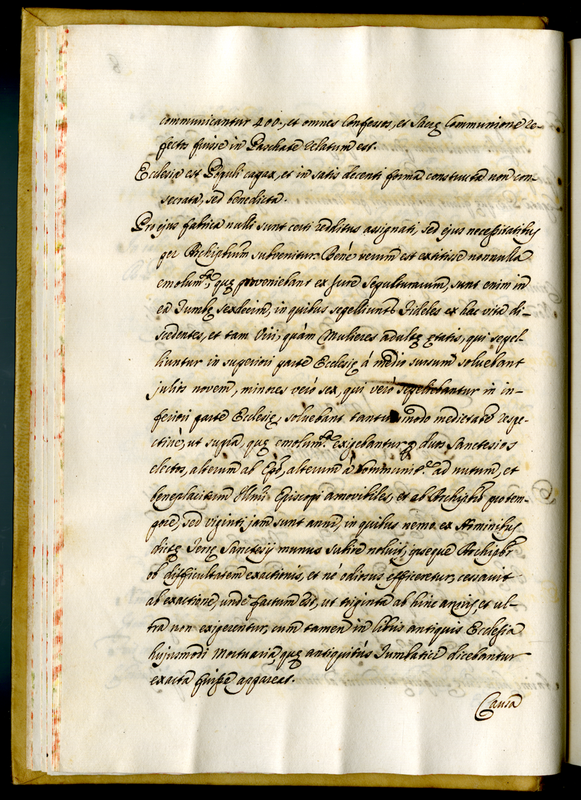 communicantur 400., et omnes Confessos, et Sacrę Communione re-
fectos fuisse in Paschate relatum est.
Ecclesia est Populi capax, et in satis decenti forma constructa non con
secrata, sed benedicta.
Pro ejus fabrica nulli sunt certi redditus assignati, sed ejus necessitatibus
per Archiptum subvenitur. Bene verum est extitisse nonnulla
emolumta, quę proveniebant ex jure Sepulturarum, sunt enim in
ea Tumbę sexdecim, in quibus sepelliuntr Fideles ex hac vita di-
scedentes, et tam Viri, quàm Mulieres adultę ętatis, qui sepel-
liuntur in superiori parte Ecclesię à medio sursum solvebant
julios novem, minores vero sex, qui verò sepeliebantur in in-
feriori parte Ecclesię, solvebant tantum modo medietatem respe-
ctivè, ut supra, quę emolumta exigebantur p duos Sanctesios
electos, alterum ab Epo, alterum à Communite ad nutum, et
beneplacitum Illmi Episcopi amovibiles, et ab Archipbro pro tem-
pore, sed viginti jam sunt anni, in quibus nemo ex Hominibus
dictę Terrę Sanctesij munus subire voluit; ipseque Archipbr
ob difficultatem exactionis, et nè odiosus efficeretur, cessavit
ab exactione, unde factum est, ut triginta ab hinc annis, et ul-
tra non exigerentur, cum tamen in libris antiquis Ecclesia
hujusmodi Mortuaria, quę antiquitus Tumbatice dicebantur
exacta fuisse appareat.
Caura